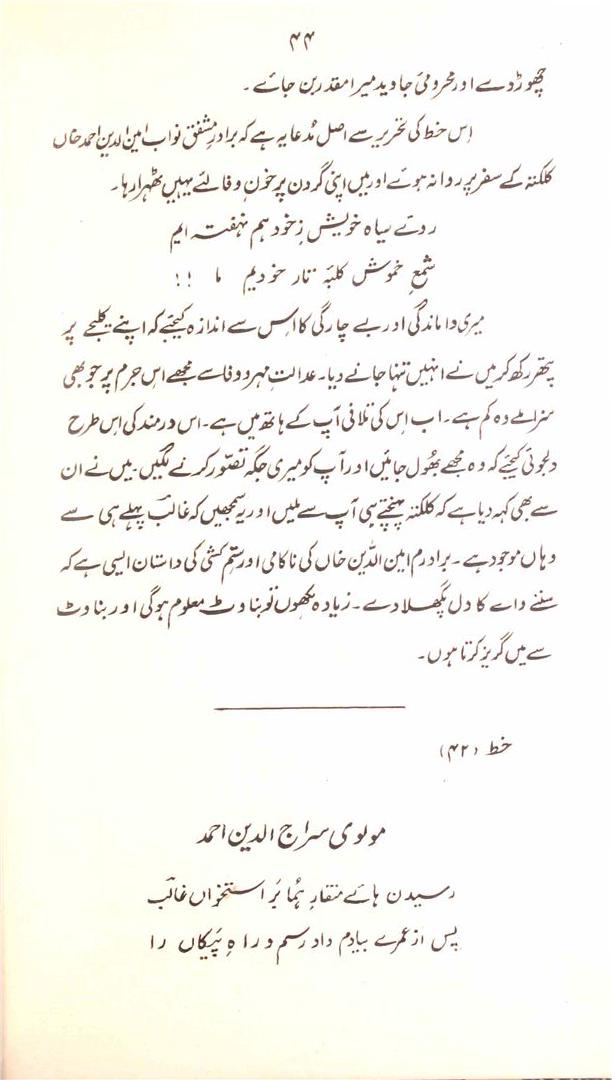 ۴۴
چھوڑ دے اور محرومیٔ جاوید میرا مقدر بن جائے۔
اِس خط کی تحریر سے اصل مُدعا یہ ہے کہ برادرِ مشفق نواب امین الدین احمد خاں
کلکتہ کے سفر پر روانہ ہوئے اور میں اپنی گردن پر خونِ وفا لئے یہیں ٹھہرا رہا۔
روئے سیاہ خویش زخود ہم نہفتہ ایم
شمعِ خموش کلبۂ تار خودیم ما !!
میری واماندگی اور بے چارگی کا اس سے اندازہ کیجئے کہ اپنے کلیجے پر
پتھر رکھ کر میں نے انہیں تنہا جانے دیا۔ عدالتِ مہر و وفا سے مجھے اس جرم پر جو بھی
سزا ملے وہ کم ہے۔ اب اس کی تلافی آپ کے ہاتھ میں ہے۔ اس درمند کی اس طرح
دلجوئی کیجئے کہ وہ مجھے بھُول جائیں اور آپ کو میری جگہ تصوّر کرنے لگیں۔ میں نے ان
سے بھی کہہ دیا ہے کہ کلکتہ پہنچتے ہی آپ سے ملیں اور یہ سمجھیں کہ غالبؔ پہلے ہی سے
وہاں موجود ہے۔ برادرم امین الدّین خاں کی ناکامی اور ستم کشی کی داستان ایسی ہے کہ
سننے والے کا دل پگھلا دے۔ زیادہ لکھوں تو بناوٹ معلوم ہوگی اور بناوٹ
سے میں گریز کرتا ہوں۔
خط (۴۲)
مولوی سراج الدین احمد
رسیدن ہائے منقارِ ہُما بَر استخواں غالبؔ
پس از عمرے بیادم داد رسم و راہِ پَیکاں را